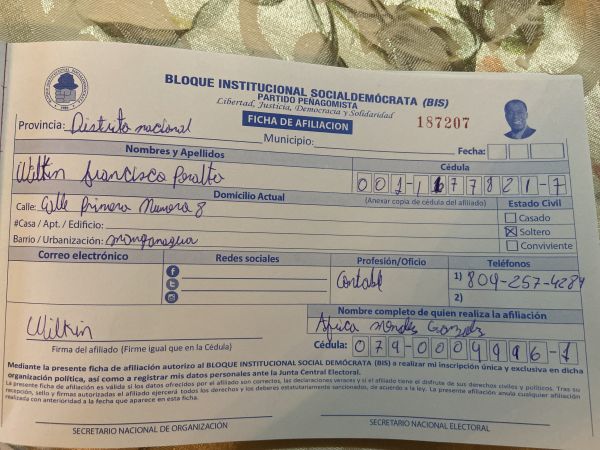 BLOQUE INSTITUCIONAL SOCIALDEMÓCRATA (BIS)
PARTIDO PEÑAGOMISTA
Libertad, Justicia, Democracia y Solidaridad
FICHA DE AFILIACION
187207
Provincia: Distrito nacional Municipio: Fecha:
Nombres y Apellidos
Wilkin francisco Peralta
Cédula
001-1677821-7
(Anexar copia de cédula del afiliado)
Domicilio Actual
Calle: Calle Primera Numero 8
#Casa / Apt. / Edificio:
Barrio / Urbanización: manganagua
Estado Civil
Casado
Soltero
Conviviente
Correo electrónico
Redes sociales
Profesión/Oficio
Contable
Teléfonos
1) 809-257-4284
2)
Wilkin
Firma del afiliado (Firme igual que en la Cédula)
Nombre completo de quien realiza la afiliación
Africa Mendes Gonzalez
Cédula: 079-0009996-1
Mediante la presente ficha de afiliación autorizo al BLOQUE INSTITUCIONAL SOCIAL DEMÓCRATA (BIS) a realizar mi inscripción única y exclusiva en dicha
organización política, así como a registrar mis datos personales ante la Junta Central Electoral.
La presente ficha de afiliación es válida si los datos ofrecidos por el afiliado son correctos, las declaraciones veraces y si el afiliado tiene el disfrute de sus derechos civiles y políticos. Tras su
recepción, sello y firmas autorizadas el afiliado ejercerá todos los derechos y los deberes estatutariamente sancionados, de acuerdo a la ley. La presente afiliación anula cualquier afiliación
realizada con anterioridad a la fecha que aparece en esta ficha.
SECRETARIO NACIONAL DE ORGANIZACIÓN
SECRETARIO NACIONAL ELECTORAL